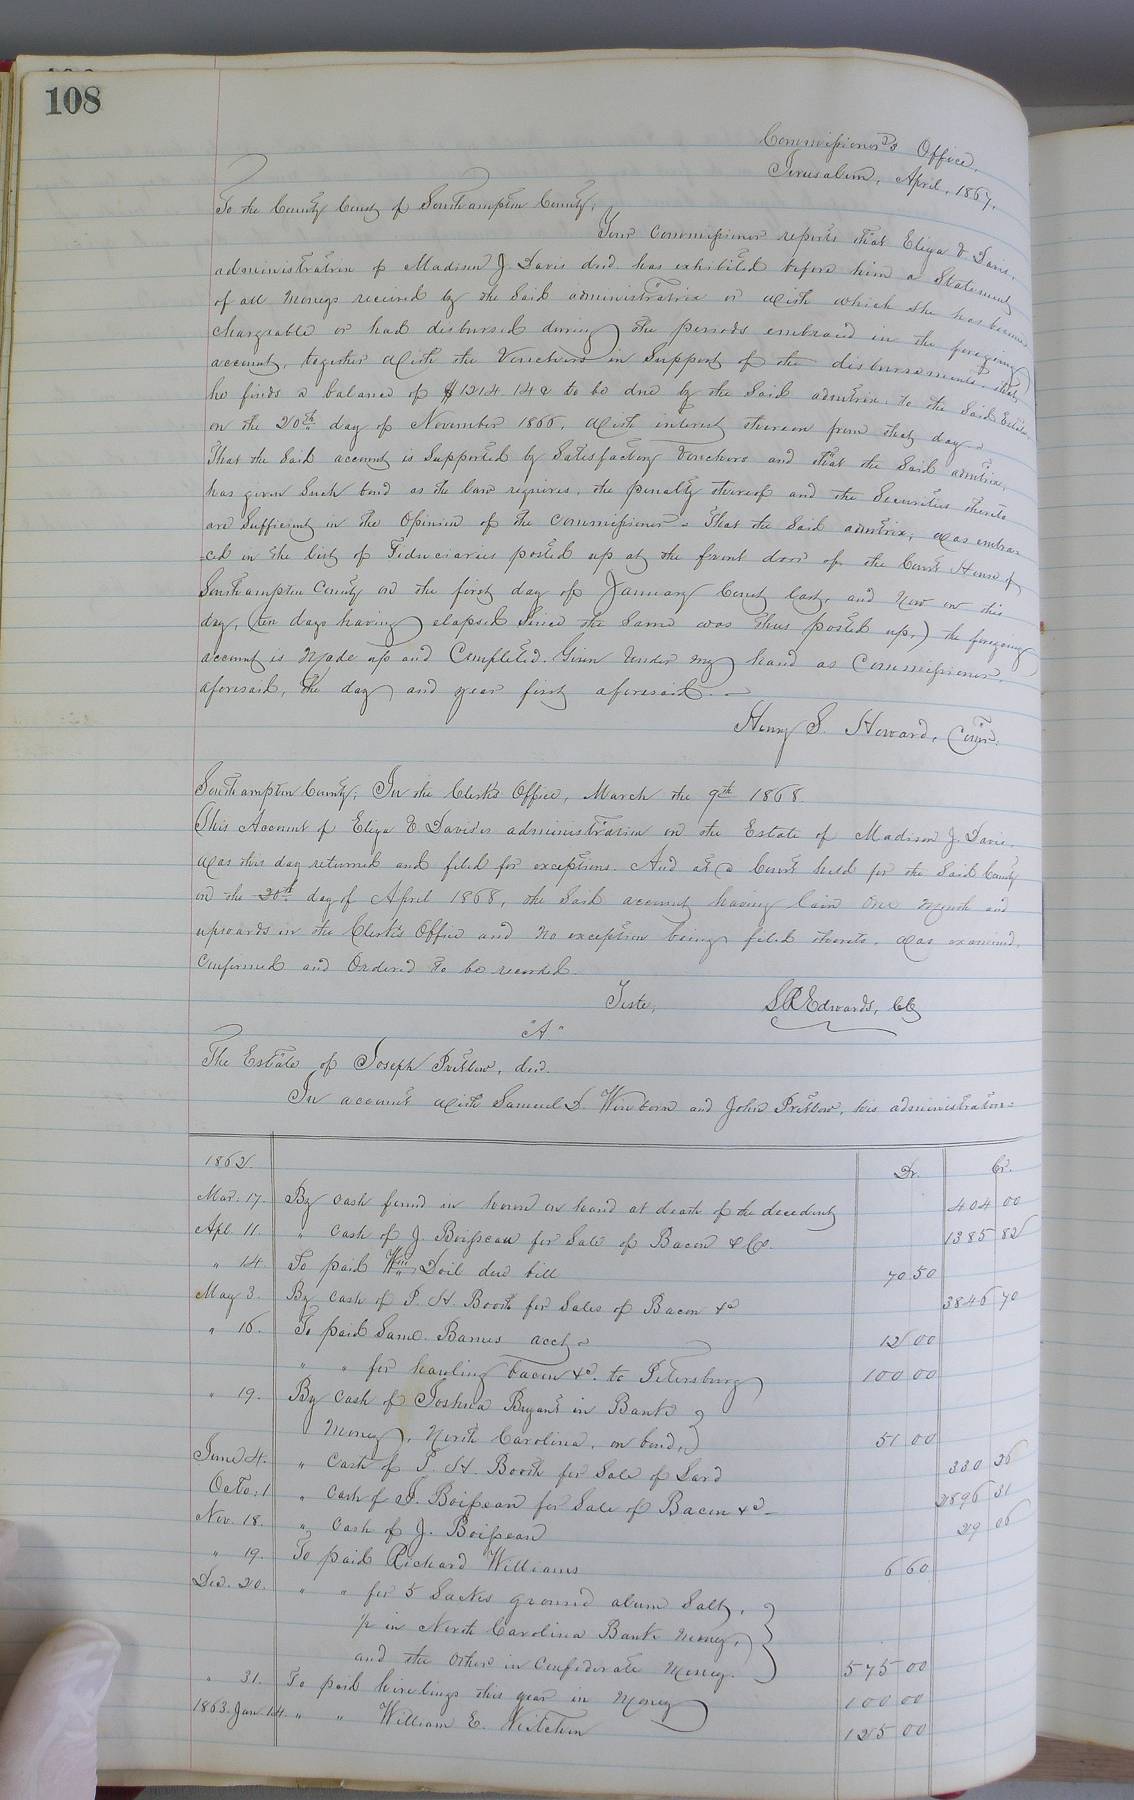 108
Commissioner's Office,
Jerusalem, April, 1867.
To the County Court of Southampton County;
Your Commissioner reports that Eliza E Davis,
administratrix of Madison J. Davis decd. has exhibited before him a Statement
of all Moneys received by the said administratrix or with which she has become
chargeable or had disbursed during the periods embraced in the foregoing
account, together with the Vouchers in Support of the disbursements, that
he finds a balance of $1214.14 ¢ to be due by the Said admtrix. to the Said Estate
on the 20th day of November 1866, with interest thereon from that day.
That the Said account is Supported by Satisfactory Vouchers and that the Said admtrix.
has given Such bond as the law requires, the penalty thereof and the Securities thereto
are Sufficient in the Opinion of the Commissioner. That the Said admtrix, was embra-
=ced in the list of Fiduciaries posted up at the front door of the Court House of
Southampton County on the first day of January Court last, and Now on this
day, (ten days having elapsed Since the Same was thus posted up,) the foregoing
account is Made up and Completed. Given Under my hand as Commissioner
aforesaid, the day and year first aforesaid.
Henry S. Howard, Comr.
Southampton County; In the Clerk's Office, March the 9th 1868.
This Account of Eliza E Davis's administration on the Estate of Madison J. Davis.
was this day returned and filed for exceptions. And at a Court held for the Said County
on the 20th day of April 1868, the Said account having lain one Month and
upwards in the Clerk's Office and No exception being filed thereto, was examined,
Confirmed and Ordered to be recorded.
Teste, LR Edwards, CC
"A."
The Estate of Joseph Pretlow, decd.
In account with Samuel D. Winborn and John Pretlow, his administrators=
1862. Dr. Cr.
Mar. 17. By Cash found in house on hand at death of the decedent 404 00
Apl. 11. " Cash of J. Boisseau for Sale of Bacon & Co. 1385 82
" 14 To paid Wm Doil due bill 70 50
May 3. By Cash of P. H. Booth for Sales of Bacon &c 3846 70
" 16. To paid Saml. Barnes acct. 12 00
" " for hauling bacon &c. to Petersburg 100 00
" 19. By Cash of Joshua Bryant in Bank
Money, North Carolina, on bond, 51 00
June 4. " Cash of P. H. Booth for Sale of Lard 330 26
Octo: 1 " Cash of J. Boisseau for Sale of Bacon &c 2896 31
Nov. 18. " Cash of J. Boisseau 29 06
" 19. To paid Richard Williams 6 60
Dec. 20. " " for 5 Sacks ground alum Salt,
½ in North Carolina Bank Money,
and the Other in Confederate Money. 575 00
" 31. To paid hirelings this year in Money 100 00
1863. Jan 14. " " William E. 125 00